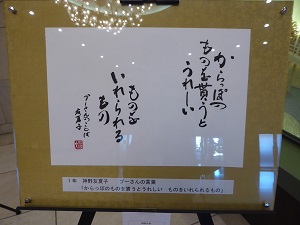 からっぽの
ものを貰うと
うれしい
ものを
いれられる
もの
プーさんのことば
友夏子
1年 神野友夏子 プーさんの言葉
「からっぽのものを貰うとうれしい ものをいれられるもの」